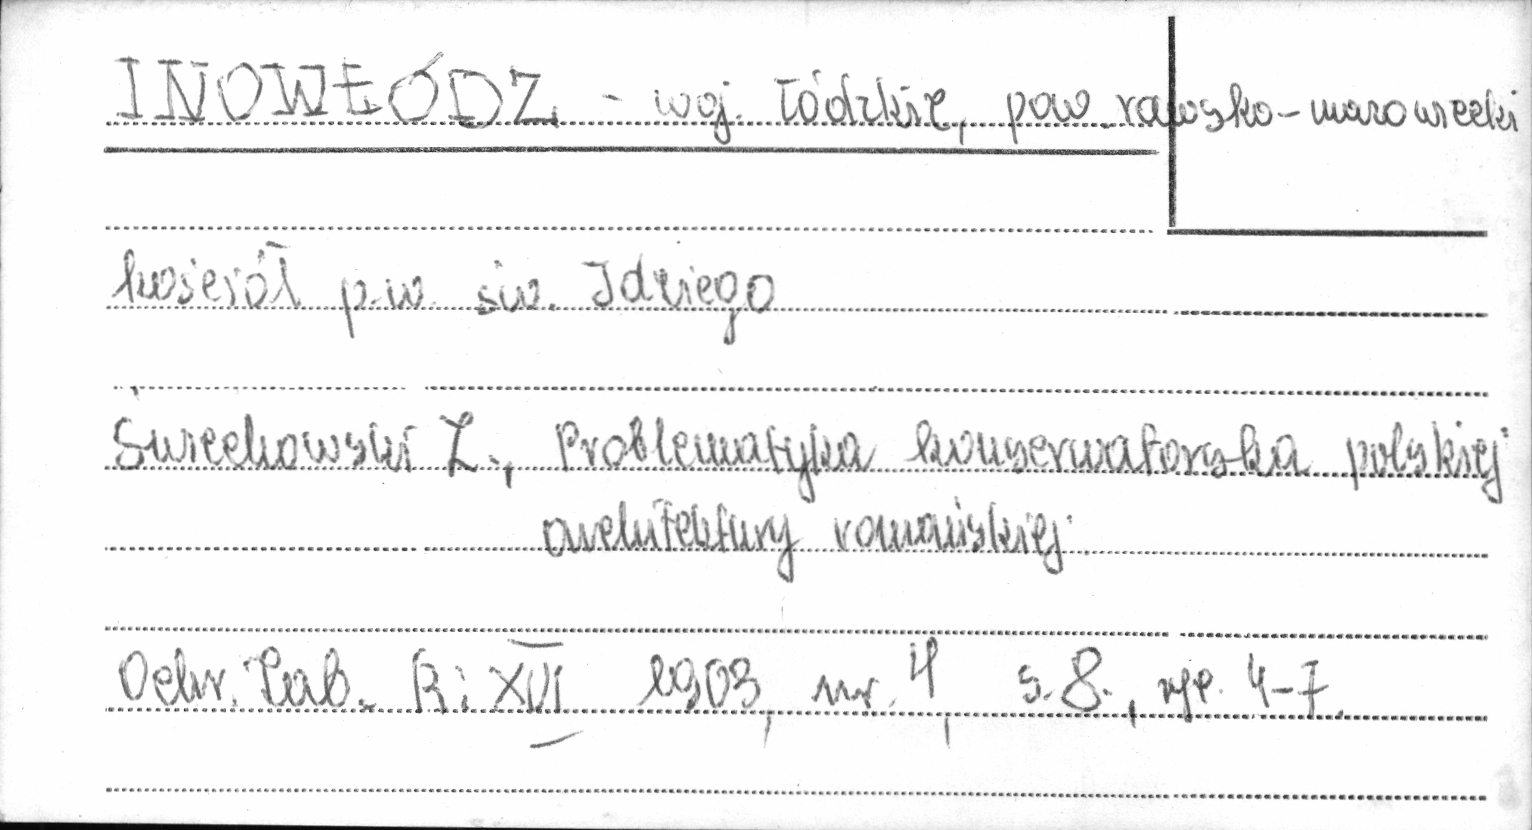 INOWŁÓDZ - woj. łódzkie, pow. rawsko-mazowiecki
kościół p.w. św. Idziego
Świechowski Z., Problematyka konserwatorska polskiej
architektury romańskiej.
Ochr. Zab. R: XVI 1963, nr. 4, s. 8., ryc. 4-7.